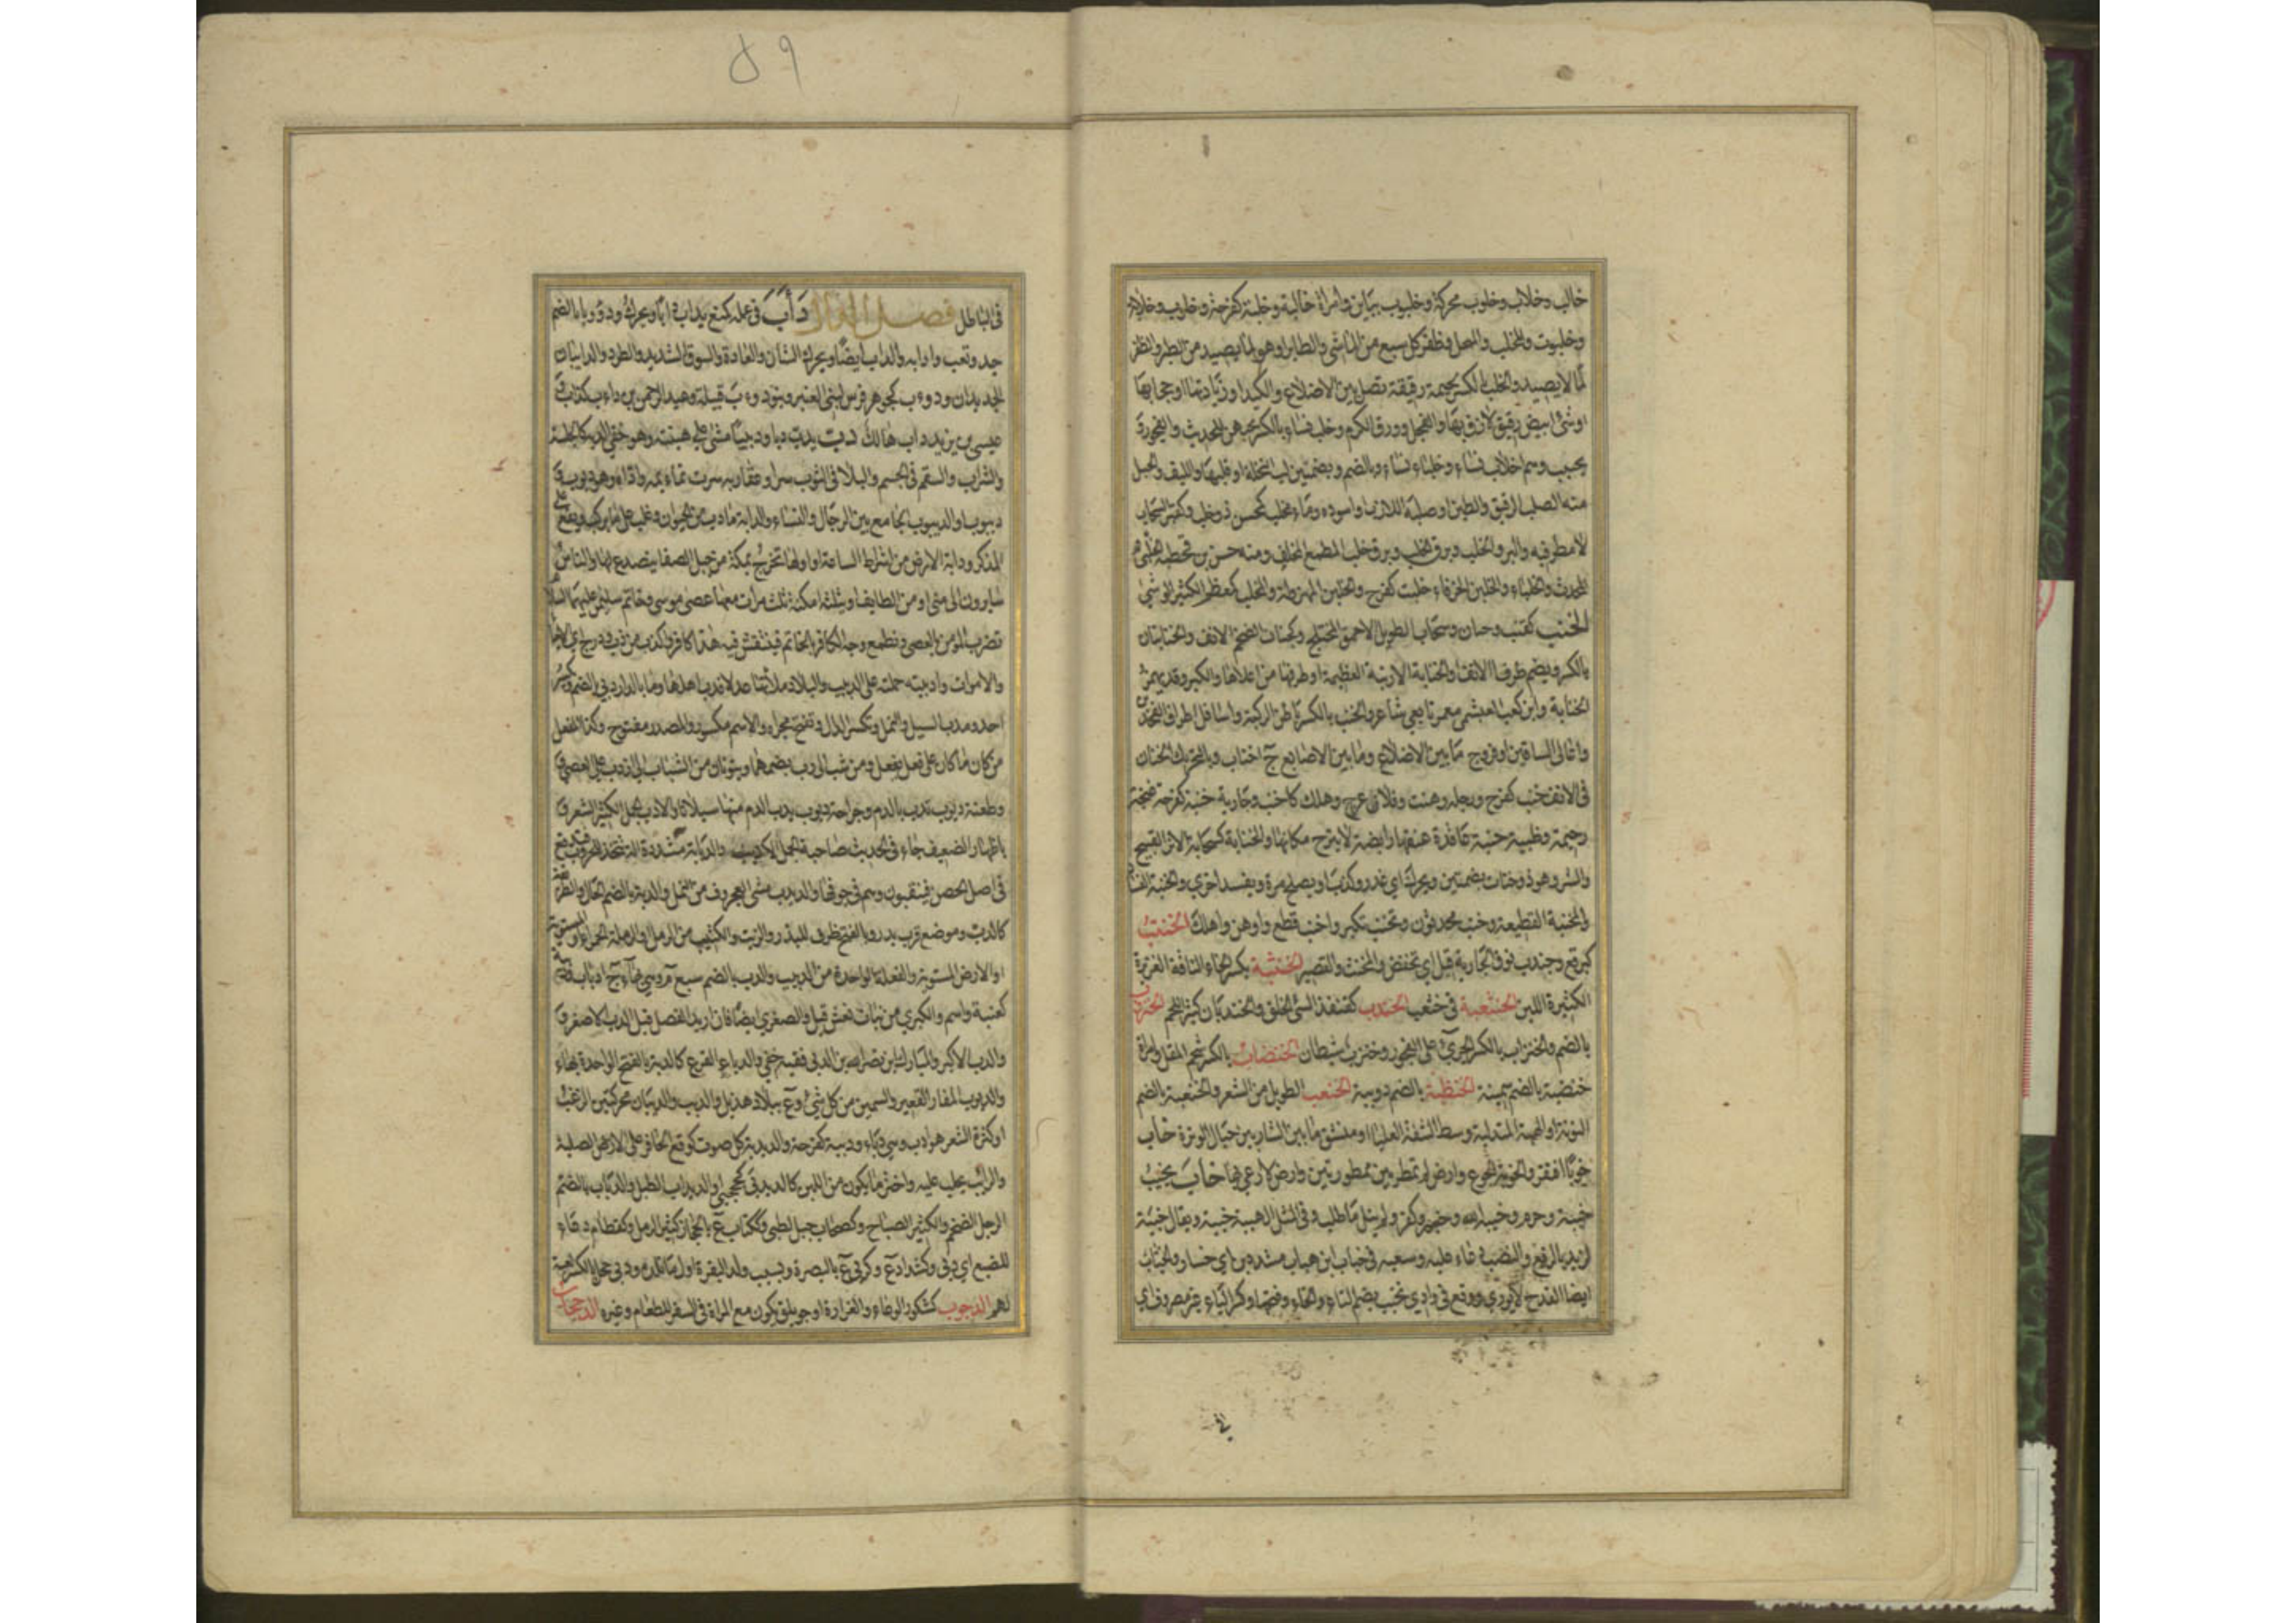 خالب وخلاب وخلوب محركة وخلبوب بباين وامراة خالبة وخلبة كفرحة وخلوب وخلابة
وخلبوت والمخلب والمنجل وظفر كل سبع من الماشي والطاير او هو لما يصيد من الطير والظفر
لما لا يصيد والخلب بالكسر لحيمة رقيقة تصل بين الاضلاع والكبد او زيادتها او حجابها
او شئ ابيض رقيق لازق بها والفجل وورق الكرم وخلب نساء بالكسر يحبهن للحديث والفجور
يحببنه وهم اخلاب نساء وخلباء نساء وبالضم وبضمتين لب النخلة او قلبها والليف والحبل
منه الصلب الرقيق والطين او صلبه اللازب او اسوده وماء مخلب كمحسن ذو خلب وكقبر السحاب
لا مطر فيه والبرق الخلب وبرق الخلب وبرق خلب المطمع المخلف ومنه حسن بن قحطبة الخلبي
المحدث والخلباء والخلبن الخرقاء خلبت كفرح والخلبن المهزولة والمخلب كمعظم الكثير الوشي
الخنب كقنب وجنان وسحاب الطويل الاحمق المختلج وكجنان الضخم الانف والخنابتان
بالكسر ويضم طرفا الانف او الخنابة الارنبة العظيمة او طرفها من اعلاها والكبر وقد يهمز
الخنابة وابن كعب العبشمي معمر تابعي شاعر والخنب بالكسر باطن الركبة واسافل اطراف الفخذين
واعالي الساقين او فروج ما بين الاضلاع وما بين الاصابع ج اخناب وبالتحريك الخنان
في الانف خنب كفرح ورجله وهنت وفلان عرج وهلك كاخنب وجارية خنبة كفرحة غنجة
رخيمة وظبية خنبة عاقدة عنقها رابضة لا تبرح مكانها والخنابة كسحابة الاثر القبيح
والشر وهو ذو خنبات بضمتين ويحرك اي غدر وكذب او يصلح مرة ويفسد اخرى والخنبة الفساد
والمخنبة القطيعة وخنب محدثون وتخنب تكبر واخنب قطع واوهن واهلك الخنتب
كبرقع وجندب نوف الجارية قبل ان تخفض والمخنث والقصير الخنثبة بكسر الخاء الناقة الغزيرة
الكثيرة اللبن الخنثعبة في خثعب الخندب كقنفذ السئ الخلق والخندبان كثير اللحم الخنزوب
بالضم والخنزاب بالكسر الجرئ على الفجور وخنزب شيطان الخنضاب بالكسر شحم المقل وامراة
خنضبة بالضم سمينة الخنظبة بالضم دويبة الخنعب الطويل من الشعر والخنعبة بالضم
النونة او الهنة المتدلية وسط الشفة العليا او مشق ما بين الشاربين حيال الوترة خاب
خوبا افتقر والخوبة الجوع وارض لم تمطر بين ممطورتين وارض لا رعي بها خاب يخيب
خيبة وحرم وخيبه الله وخسر وكفر ولم ينل ما طلب وفي المثل الهيبة خيبة ويقال خيبة
لزيد بالرفع والنصب دعاء عليه وسعيه في خياب ابن هياب مشددين اي خسار والخياب
ايضا القدح لا يوري ووقع في وادي تخيب بضم التاء والخاء وفتحها وكسر الياء غير مصروف اي
في
٥٩
في الباطل فصل الدال دأب في عمله كمنع يداب دابا ويحرك ودؤوبا بالضم
جد وتعب وادابه والداب ايضا ويحرك الشان والعادة والسوق الشديد والطرد والدايبان
الجديدان ودوءب كجوهر فرس لبني العنبر وبنو دوءب قبيلة وعبد الرحمن بن داب كذاب
عيسى بن يزيد داب هالك دب يدب دبا ودبيبا مشى على هينته وهو خفي الدبة كالجلسة
والشراب والسقم في الجسم والبلا في الثوب سرا وعقاربه سرت نمائمه واذاه وهو دبوب
ديبوب او الديبوب الجامع بين الرجال والنساء والدابة ما دب من الحيوان وغلب على ما يركب ويقع على
المذكر ودابة الارض من اشراط الساعة او اولها تخرج بمكة من جبل الصفا يتصدع لها والناس
سايرون الى منى او من الطايف او بثلثة امكنة ثلث مرات معها عصى موسى وخاتم سليمن عليهما السلام
تضرب المؤمن بالعصى وتطبع وجه الكافر بالخاتم فينتقش فيه هذا كافر واكذب من دب ودرج اي الاحياء
والاموات وادببته حملته على الدبيب والبلاد ملاتها عدلا فدب اهلها وما بالدار دبي بالضم ويكسر
احد ومدب السيل والنمل وتكسر الدال وتفتح مجراه والاسم مكسور والمصدر مفتوح وكذا المفعل
من كان ما كان على فعل يفعل ومن شب الى دب بضمهما وينونان من الشباب الى ان دب على العصى
وطعنة دبوب تدب بالدم وجراحة دبوب يدب الدم منها سيلانا والادب الجمل الكثير الشعر
باظهار الضعيف جاء في الحديث صاحبة الجمل الادبب والدبابة مشددة الة تتخذ للحروب فتدفع
في اصل الحصن فينقبون وهم في جوفها والدبدب مشي العجروف من النمل والدبة بالضم الحال والطريقة
كالدب وموضع قرب بدر وبالفتح ظرف للبذر والزيت والكثيب من الرمل والرملة الحمراء او المستوية
او الارض المستوية والفعلة الواحدة من الدبيب والدب بالضم سبع م وهي بهاء ج ادباب ودببة
كعنبة واسم والكبرى من بنات نعش قيل والصغرى ايضا فان اريد الفصل قيل الدب الاصغر
والدب الاكبر والمبارك بن نصر الله بن الدبي فقيه حنفي والدباء القرع كالدبة بالفتح الواحدة بهاء
والدبوب الغار القعير والسمين من كل شئ وع ببلاد هذيل والدبب والدببان محركتين الزغب
او كثرة الشعر هو ادب وهي دباء ودببة كفرحة والدبدبة كل صوت كوقع الحافر على الارض الصلبة
والرائب يحلب عليه او اخثر ما يكون من اللبن كالدبدبى كجحجبى والدبداب الطبل والدباب بالضم
الرجل الضخم والكثير الصياح وكسحاب جبل لطي وككتاب ع بالحجاز كثير الرمل وكقطام دعاء
للضبع اي دبي وكشداد ع وكربى ع بالبصرة ودبب ولد البقرة اول ما تلده ودبى حجل بالكسر لعبة
لهم الدجوب كشكور الوعاء والغرارة او جويلق يكون مع المراة في السفر للطعام وغيره الدحجاب